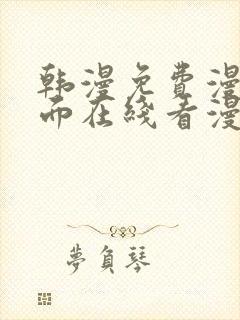 韩漫免费漫
而在线看漫
夢負琴